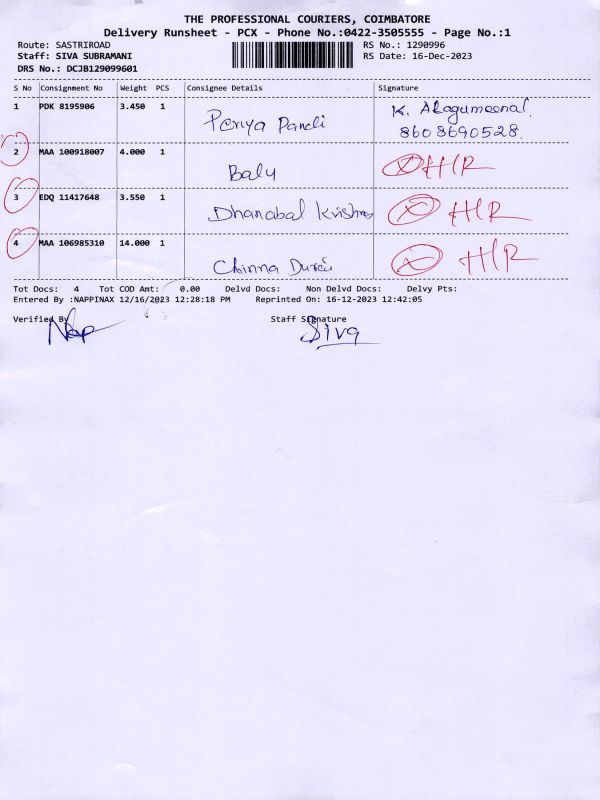 THE PROFESSIONAL COURIERS, COIMBATORE
Delivery Runsheet - PCX - Phone No.:0422-3505555 - Page No.:1
Route: SASTRIROAD RS No.: 1290996
Staff: SIVA SUBRAMANI RS Date: 16-Dec-2023
DRS No.: DCJB129099601
S No Consignment No Weight PCS Consignee Details Signature
1 PDK 8195906 3.450 1 Periya Pandi K. Alagumeenal
8608690528
2 MAA 100918007 4.000 1 Balu HR
3 EDQ 11417648 3.550 1 Dhanabal Krishna HR
4 MAA 106985310 14.000 1 Chinna Durai HR
Tot Docs: 4 Tot COD Amt: 0.00 Delvd Docs: Non Delvd Docs: Delvy Pts:
Entered By :NAPPINAX 12/16/2023 12:28:18 PM Reprinted On: 16-12-2023 12:42:05
Verified By Staff Signature
Siva